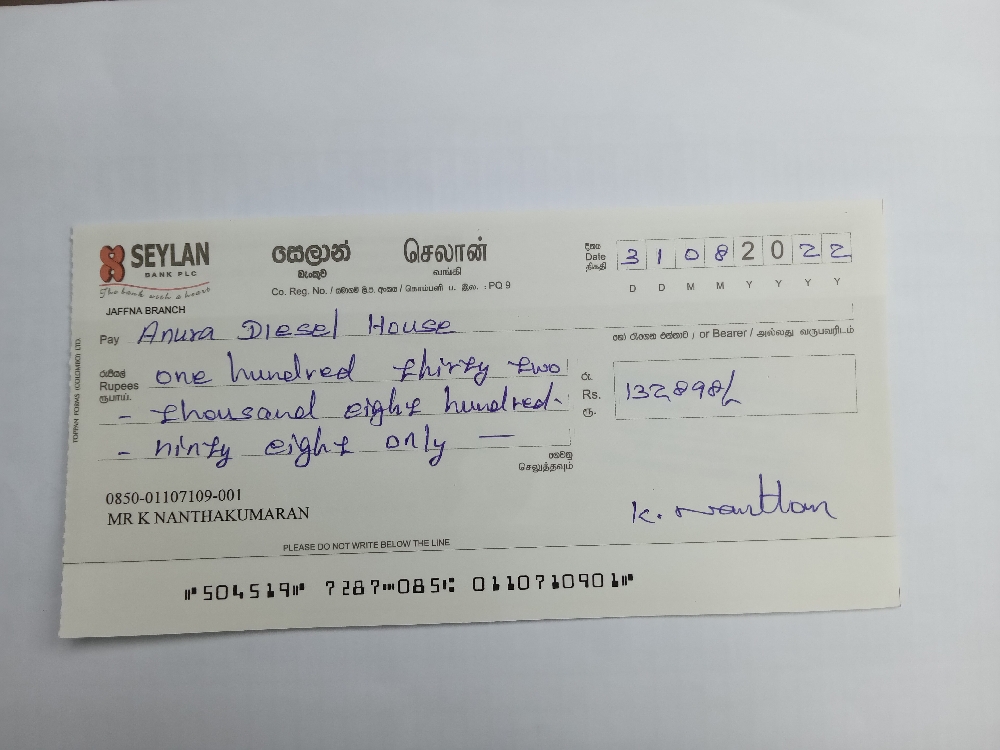 SEYLAN
BANK PLC
The bank with a heart
JAFFNA BRANCH
සෙලාන්
බැංකුව
செலான்
வங்கி
Co. Reg. No. / සමාගම් ලි.ප. අංකය / கொம்பனி ப. இல. : PQ 9
දිනය
Date
திகதி
3 1 0 8 2 0 2 2
D D M M Y Y Y Y
Pay Anura Diesel House
හෝ රැගෙන එන්නාට / or Bearer / அல்லது வருபவரிடம்
රුපියල්
Rupees
ரூபாய்
one hundred thirty two
- thousand eight hundred -
- ninty eight only —
රු.
Rs.
ரூ.
132,898/
ගෙවනු
செலுத்தவும்
0850-01107109-001
MR K NANTHAKUMARAN
K. Nanthan
PLEASE DO NOT WRITE BELOW THE LINE
⑈504519⑈ 7287⑉085⑆ 0110710901⑈
TOPPAN FORMS (COLOMBO) LTD.